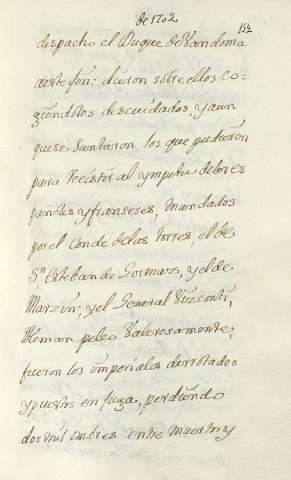 de 1702
154
despacho el Duque de Vandoma
a este fin: dieron sobre ellos co-
giendolos descuidados, y aun
que se Juntaron los que pudieron
para recistir al ympetu de los es
pañoles y franseses, mandados
por el Conde de las torres, el de
Sn Esteban de Gormaz, y el de
Marzin; y el General Vizconti,
Aleman peleo Valerosamente,
fueron los imperiales derrotados
y puestos en fuga, perdiendo
dos mil ombres entre muertos y